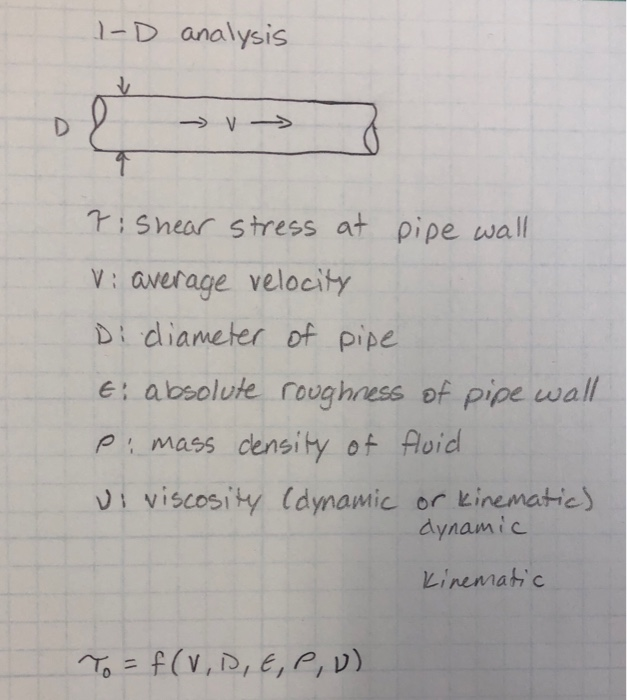 1-D analysis
D → V →
τ: Shear stress at pipe wall
V: average velocity
D: diameter of pipe
ϵ: absolute roughness of pipe wall
ρ: mass density of fluid
ν: viscosity (dynamic or kinematic)
dynamic
Kinematic
τ₀ = f(V, D, ϵ, ρ, ν)